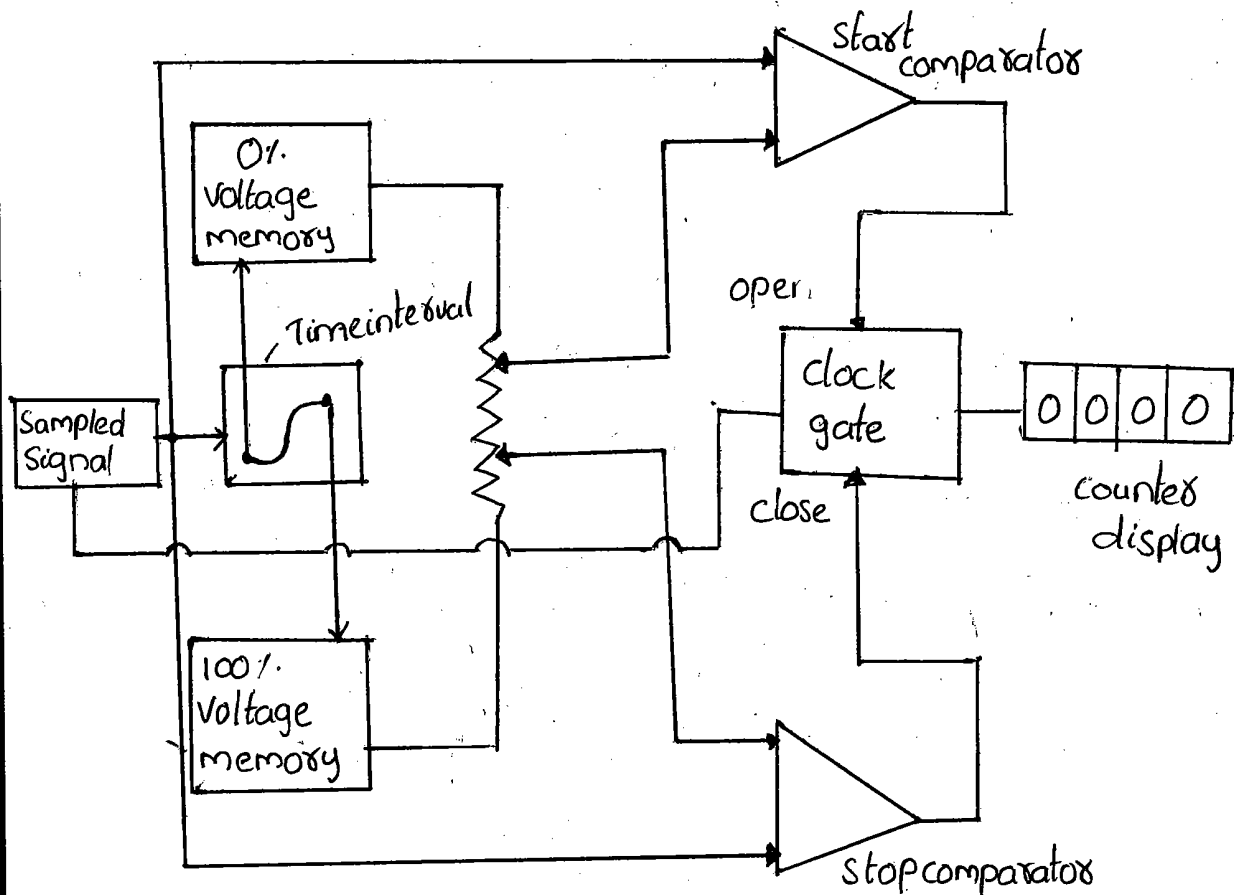 Start
comparator
0%
voltage
memory
Timeinterval
open
Sampled
Signal
clock
gate
0 0 0 0
close
counter
display
100%
Voltage
memory
Stopcomparator